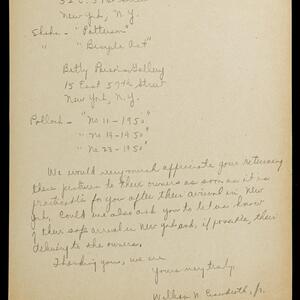 New York, N.Y.
Shahn - "Patterson"
" "Bicycle Act"
Betty Parsons Gallery
15 East 57th Street
New York, N.Y.
Pollock - "No 11-1950"
"No 19-1950"
"No 23-1950"
We would very much appreciate your returning
these pictures to their owners as soon as it is
practicable for you after their arrival in New
York. Could we also ask you to let us know
of their safe arrival in New York and, if possible, their
delivery to the owners.
Thanking you, we are
Yours very truly,
William N. Jr.